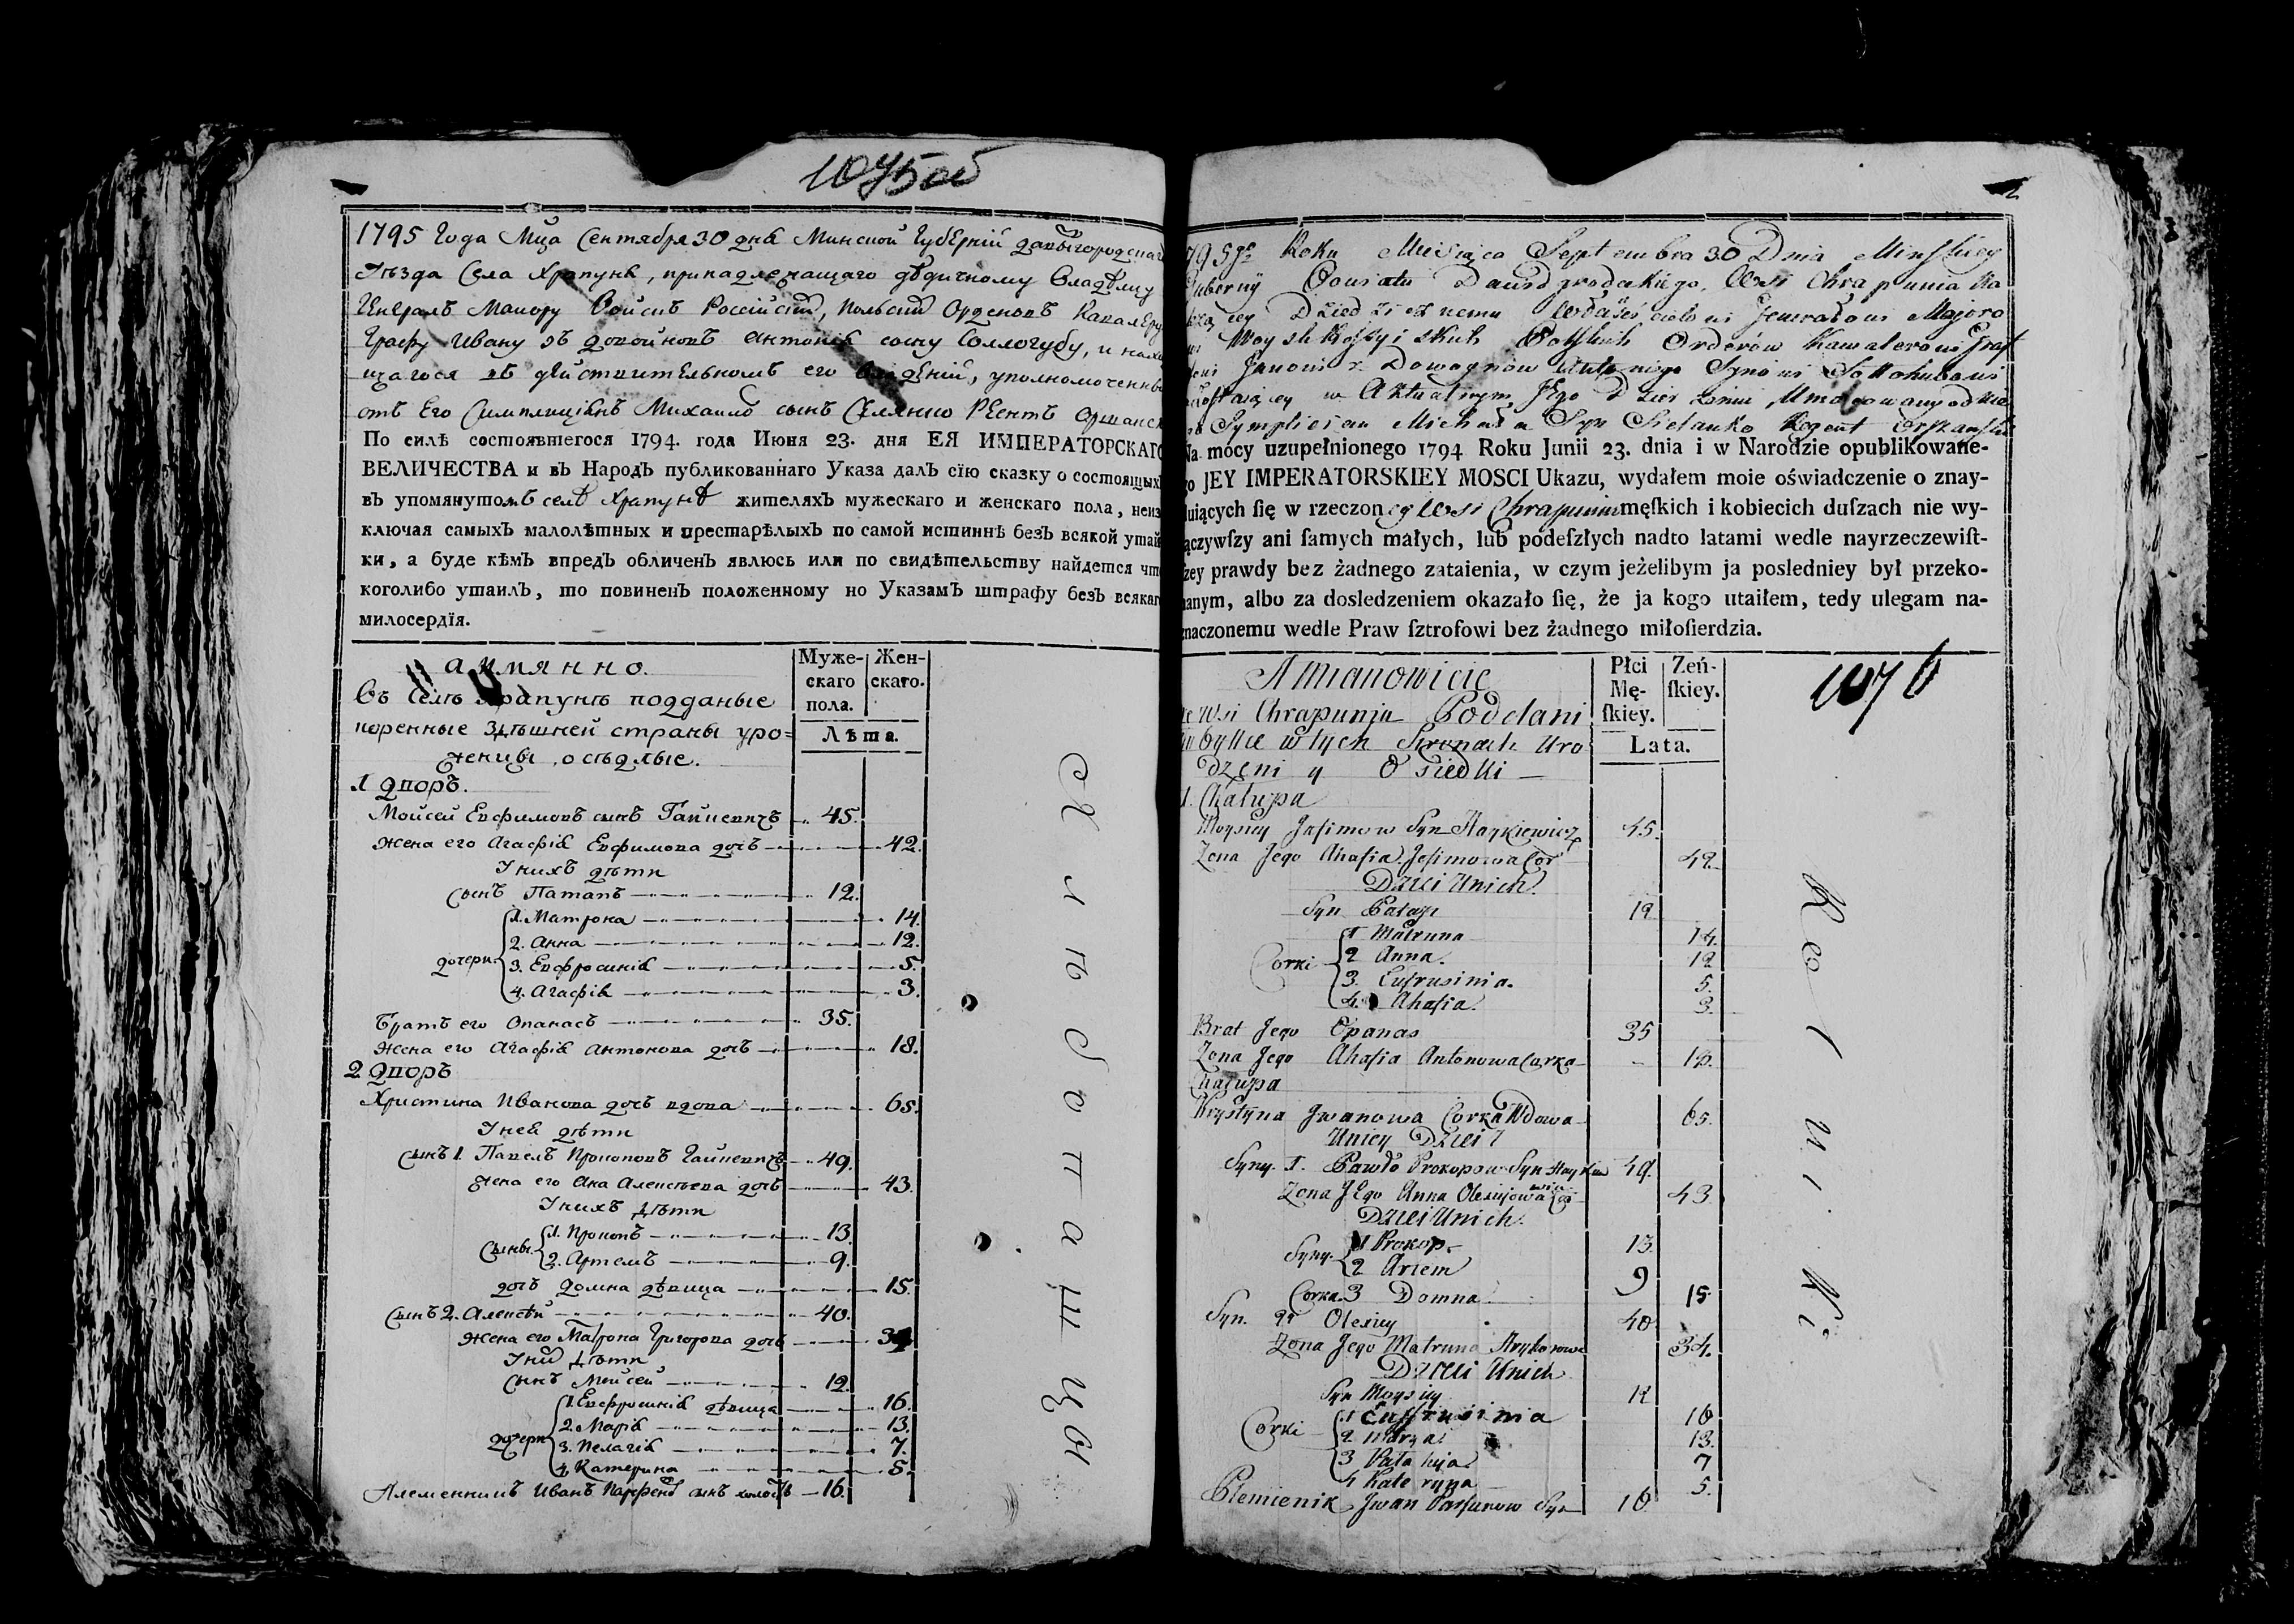 1075об
1795 Года Мца Сентября 30 дня Минской Губерніи Давыгородскаго
Уѣзда Села Храпуня, принадлежащаго дѣдичному Владѣлцу
Генералъ Маиору Войскъ Россійскихъ, Польскихъ Орденовъ Кавалеру
Графу Ивану зъ Довойновъ Антонія сыну Соллогубу, и нахо
щагося въ дѣйствительномъ его владѣніи, уполномоченны
отъ Его Симплиціянъ Михаила сынъ Селянко Реентъ Оршанск
По силѣ состоявшегося 1794. года Июня 23. дня ЕЯ ИМПЕРАТОРСКАГО
ВЕЛИЧЕСТВА и въ Народъ публикованнаго Указа далъ сїю сказку о состоящихъ
въ упомянутомъ селѣ Храпунѣ жителяхъ мужескаго и женскаго пола, неиз
ключая самыхъ малолѣтныхъ и престарѣлыхъ по самой истиннѣ безъ всякой утай
ки, а буде кѣмъ впредъ обличенъ явлюсь или по свидѣтельству найдется что
коголибо утаилъ, то повиненъ положенному по Указамъ штрафу безъ всякаго
милосердїя.
а имянно.
Въ Селѣ Храпунѣ подданые
коренные здѣшней страны уро=
женцы, осѣдлые.
Муже-
скаго
пола.
Жен-
скаго.
Лѣта.
1 дворъ.
Мойсей Евфимовъ сынъ Гайкевичъ 45.
жена его Агафія Евфимова дочь 42.
У нихъ дѣти
сынъ Патапъ 12.
дочери 1. Матрона 14.
2. Анна 12.
3. Евфросинія 5.
4. Агафія 3.
Братъ его Опанасъ 35.
жена его Агафія Антонова дочь 18.
2 дворъ
Христина Иванова дочь вдова 65.
У ней дѣти
сынъ 1. Павелъ Прокоповъ Гайкевичъ 49.
жена его Ана Алексѣева дочь 43.
У нихъ дѣти
Сыны 1. Прокопъ 13.
2. Артемъ 9.
дочь Домна дѣвица 15.
Сынъ 2. Алексѣй 40.
жена его Матрона Григорова дочь 34
У них дѣти
сынъ Мойсей 12.
дочери 1. Евфросинія дѣвица 16.
2. Марія 13.
3. Пелагія 7.
4. Катерина 5.
Племенникъ Иванъ Парфеновъ сынъ холостъ 16.
Хлѣбопашцы
795go Roku Miesiąca Septembra 30 Dnia Minskiey
Guberny Powiatu Dawidgrodzkiego, Wsi Chrapunia Na
leżącey Dziedzicznemu Właścicielowi Jenerałowi Majoro
wi Woysk Rossyiskich Polskich Orderów Kawalerowi Graf
fowi Janowi z Dowaynow Antoniego Synowi Sołłohubowi
zostaiącey w Aktualnym Jego Dzierżeniu, Umocowany od nie
go Symplician Michała Syn Sielanko Regent Orszański
Na mocy uzupełnionego 1794 Roku Junii 23. dnia i w Narodzie opublikowane-
go JEY IMPERATORSKIEY MOSCI Ukazu, wydałem moie oświadczenie o znay-
duiących ſię w rzeczoney Wsi Chrapuniu męſkich i kobiecich duſzach nie wy-
łączywſzy ani ſamych małych, lub podeſzłych nadto latami wedle nayrzeczewiſt-
ſzey prawdy bez żadnego zataienia, w czym jeżelibym ja posledniey był przeko-
nanym, albo za dosledzeniem okazało ſię, że ja kogo utaiłem, tedy ulegam na-
znaczonemu wedle Praw ſztrofowi bez żadnego miłoſierdzia.
A mianowicie
we Wsi Chrapuniu Poddani
Zobyłłe w tych Stronach Uro
dzeni y Osiedli
Płci
Mę-
ſkiey.
Zeń-
ſkiey.
Lata.
1076
1. Chałupa
Moysiey Jefimow Syn Haykiewicz 45.
Zona Jego Ahafia Jefimowa Cor 42.
Dzieci Unich.
Syn Patap 12
Corki 1 Matruna 14.
2 Anna. 12
3. Eufrusinia. 5.
4. Ahafia. 3.
Brat Jego Opanas 35
Zona Jego Ahafia Antonowa Corka 18.
Chałupa
Krystyna Jwanowa Corka Wdowa 65.
Uniey Dzieci
Syny 1. Pawło Prokopow Syn Haykiewicz 49.
Zona Jego Anna Olexiejowa Co 43
Dzieci Unich.
Syny 1 Prokop 13.
2 Artem 9
Corka 3 Domna 15
Syn 2i Olexiey 40
Zona Jego Matruna Hryhorowa 34.
Dzieci Unich
Syn Moysiey 12
Corki 1 Eufrusinia 16
2 Marya 13.
3 Pałahija 7
4 Kateryna 5.
Plemienik Jwan Parfunow Syn 16
Rolniki